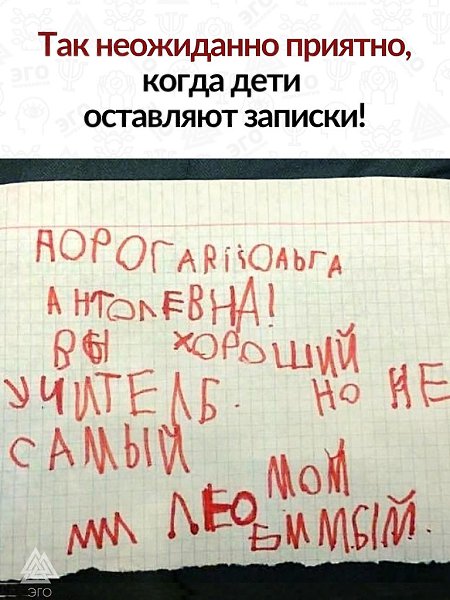 Так неожиданно приятно,
когда дети
оставляют записки!
ДОРОГАЯ ОЛЬГА
АНТОЛЕВНА!
ВЫ ХОРОШИЙ
УЧИТЕЛБ. НО НЕ
САМЫЙ
МОЙ
ЛЕО
БИМЫЙ.
ЭГО